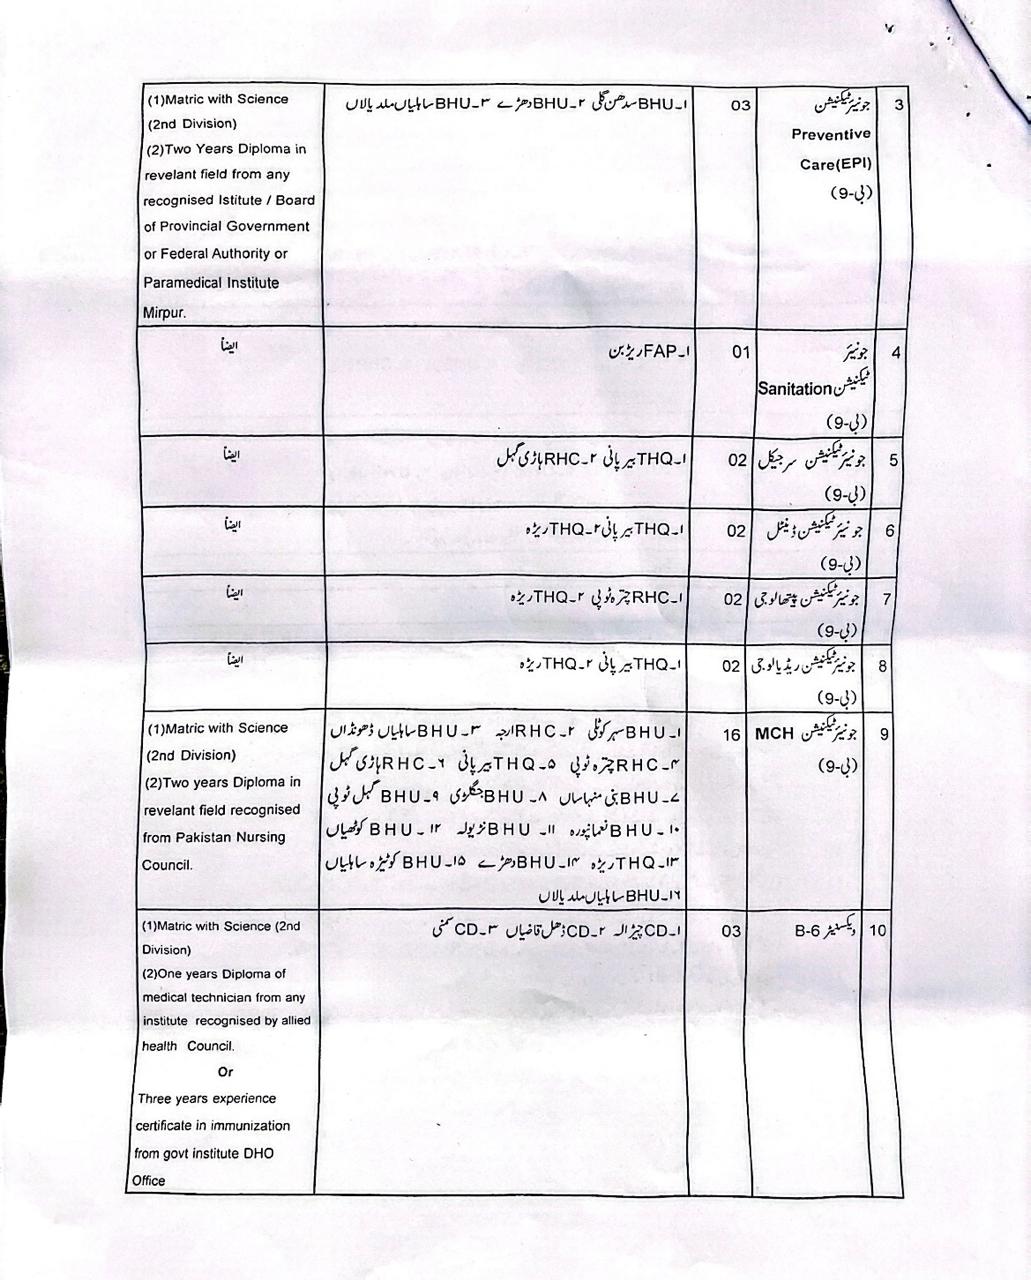 3
جونیئر ٹیکنیشن
Preventive
Care(EPI)
(بی-9)
03
۱۔BHU سدھن گلی ۲۔BHU دھڑے ۳۔BHU ساہلیاں ملدیالاں
(1)Matric with Science
(2nd Division)
(2)Two Years Diploma in
revelant field from any
recognised Istitute / Board
of Provincial Government
or Federal Authority or
Paramedical Institute
Mirpur.
4
جونیئر
ٹیکنیشن Sanitation
(بی-9)
01
۱۔FAP ریڑبن
ایضاً
5
جونیئر ٹیکنیشن سرجیکل
(بی-9)
02
۱۔THQ بیرپانی ۲۔RHC ہاڑی گہل
ایضاً
6
جونیئر ٹیکنیشن ڈینٹل
(بی-9)
02
۱۔THQ بیرپانی ۲۔THQ ریڑہ
ایضاً
7
جونیئر ٹیکنیشن پیتھالوجی
(بی-9)
02
۱۔RHC چترہ ٹوپی ۲۔THQ ریڑہ
ایضاً
8
جونیئر ٹیکنیشن ریڈیالوجی
(بی-9)
02
۱۔THQ بیرپانی ۲۔THQ ریڑہ
ایضاً
9
جونیئر ٹیکنیشن MCH
(بی-9)
16
۱۔BHU سہرکوٹلی ۲۔RHC ارجہ ۳۔BHU ساہلیاں ڈھونڈاں
۴۔RHC چترہ ٹوپی ۵۔THQ بیرپانی ۶۔RHC ہاڑی گہل
۷۔BHU بنی منہاساں ۸۔BHU جگلڑی ۹۔BHU گہل ٹوپی
۱۰۔BHU نعمانپورہ ۱۱۔BHU نڑیولہ ۱۲۔BHU کوٹھیاں
۱۳۔THQ ریڑہ ۱۴۔BHU دھڑے ۱۵۔BHU کوٹیڑہ ساہلیاں
۱۶۔BHU ساہلیاں ملدیالاں
(1)Matric with Science
(2nd Division)
(2)Two years Diploma in
revelant field recognised
from Pakistan Nursing
Council.
10
ویکسنیٹر B-6
03
۱۔CD چیڑالہ ۲۔CD ڈھل قاضیاں ۳۔CD
(1)Matric with Science (2nd
Division)
(2)One years Diploma of
medical technician from any
institute recognised by allied
health Council.
Or
Three years experience
certificate in immunization
from govt institute DHO
Office